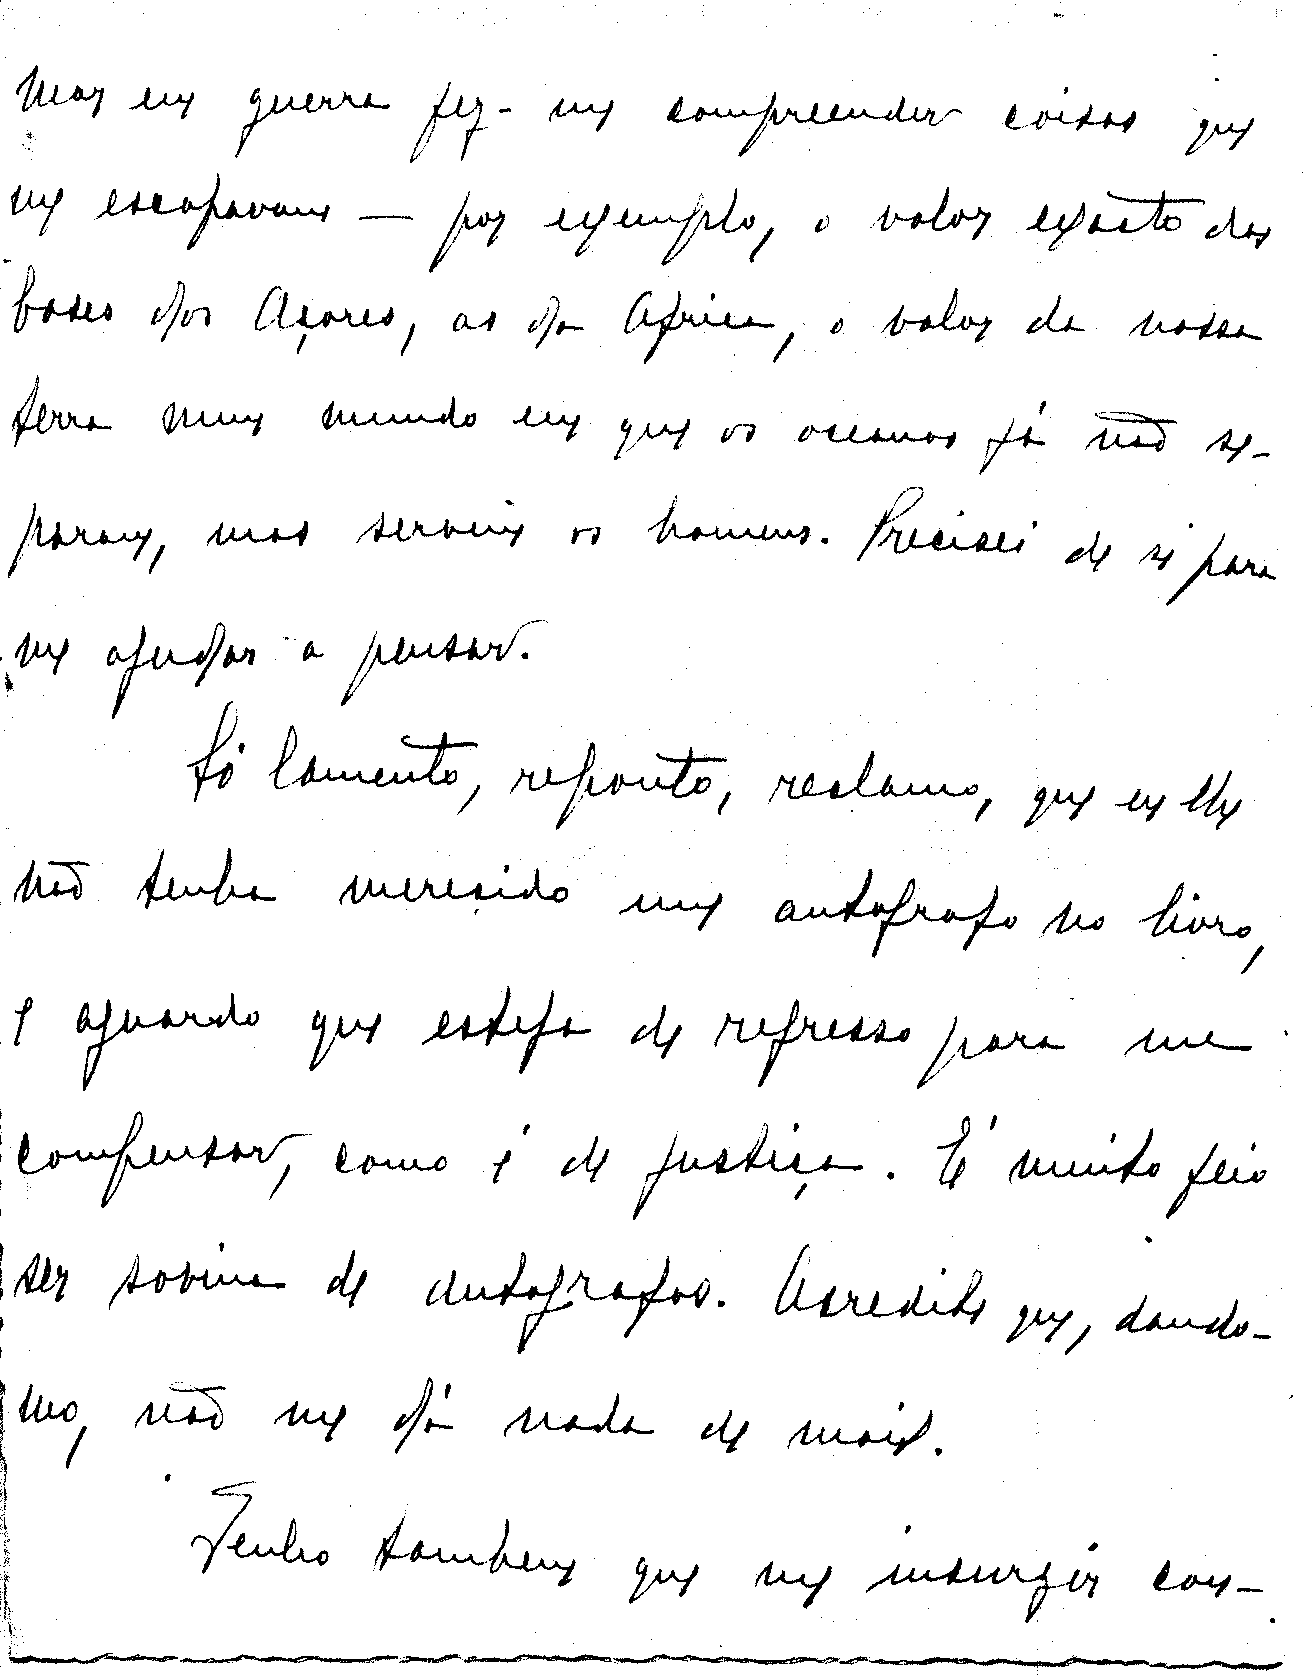 Mar em guerra fez-me compreender coisas que
me escapavam — por exemplo, o valor exacto das
bases dos Açores, as da Africa, o valor da nossa
terra num mundo em que os oceanos já não se-
param, mas servem os homens. Precisei de si para
me ajudar a pensar.
Só lamento, reponto, reclamo, que eu lhe
não tenha merecido um autografo no livro,
e aguardo que esteja de regresso para me
compensar, como é de justiça. É muito feio
ser sovina de autografos. Acredite que, dando-
mo, não me dá nada de mais.
Tenho tambem que me insurgir con-